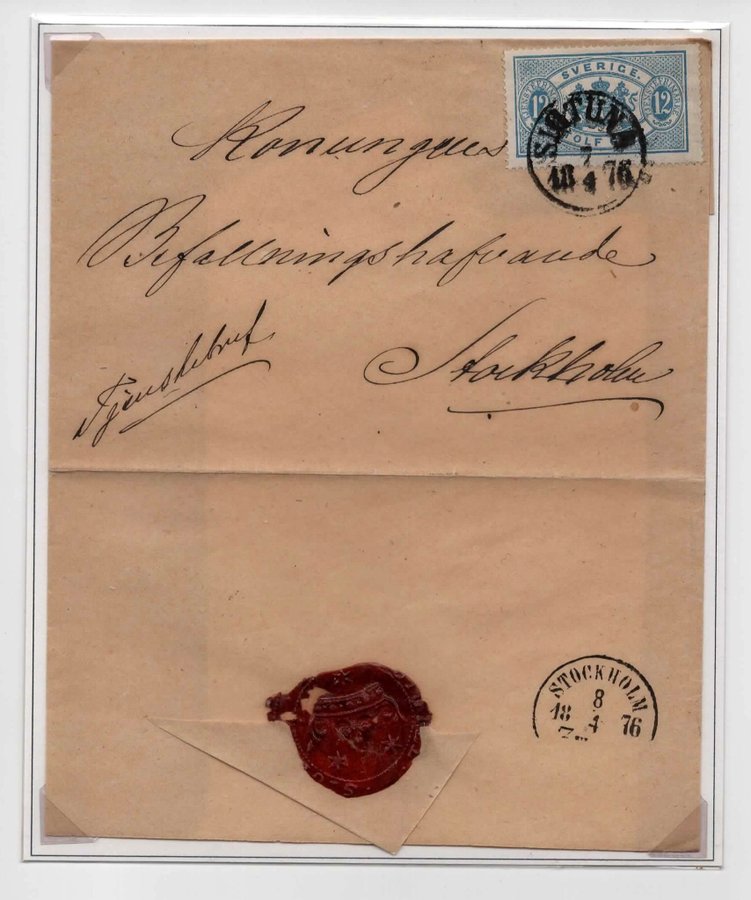 SVERIGE.
12 12
SIGTUNA
7
18 4 76
Konungens
Befallningshafvande
Stockholm
Tjenstebref
STOCKHOLM
8
18 4 76